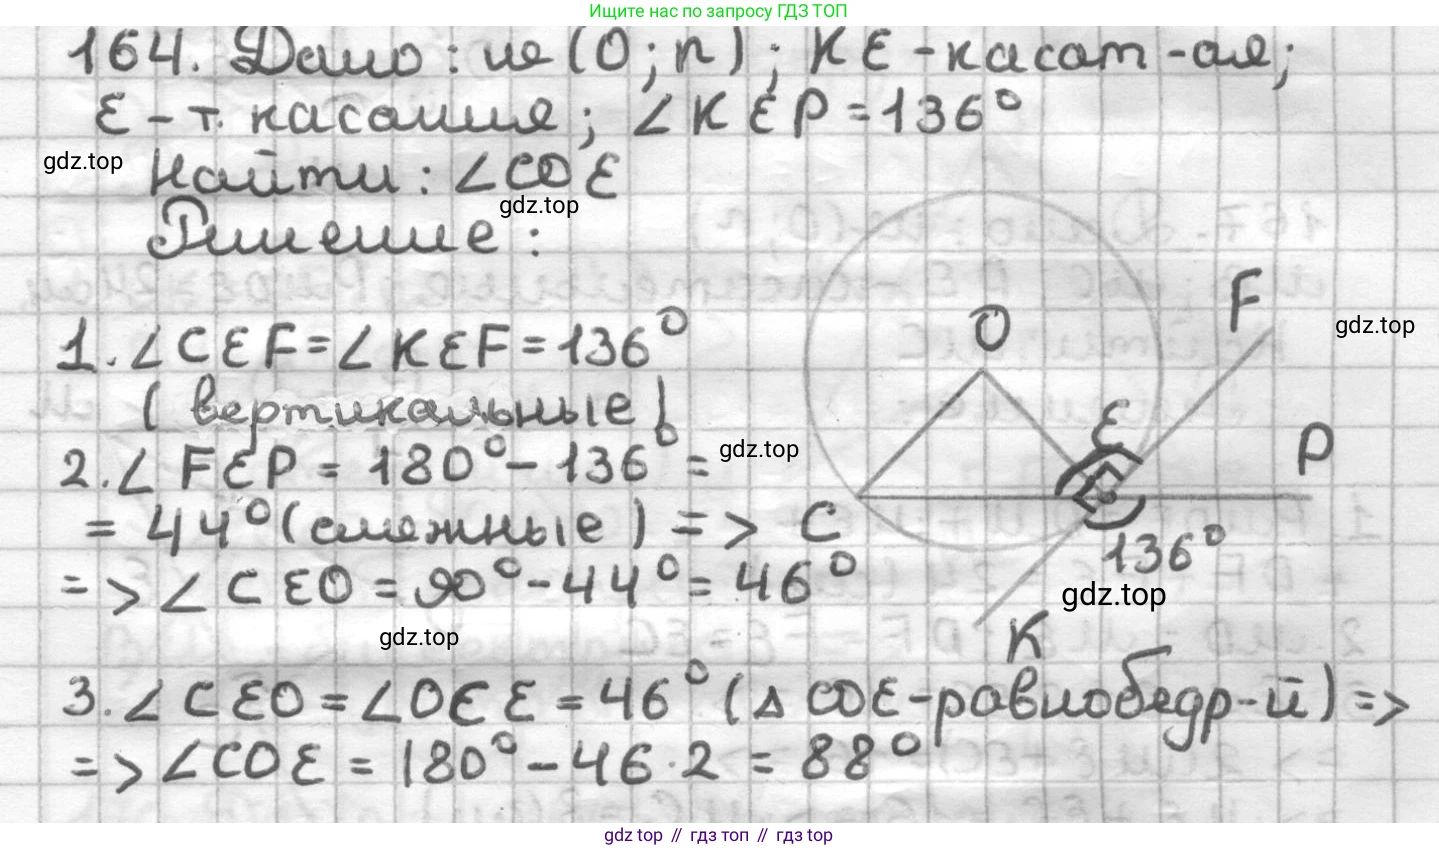 Ищите нас по запросу ГДЗ ТОП
164. Дано: (O; r); KE - касат-ая;
E - т. касания; ∠KEP = 136°
gdz.top
Найти: ∠COE
gdz.top
Решение:
1. ∠CEF = ∠KEF = 136°
(вертикальные)
2. ∠FEP = 180° - 136° =
= 44° (смежные) =>
=> ∠CEO = 90° - 44° = 46°
gdz.top
gdz.top
3. ∠CEO = ∠OCE = 46° (△COE - равнобедр-й) =>
=> ∠COE = 180° - 46·2 = 88°
O
F
gdz.top
E
P
C
136°
gdz.top
K
gdz top // гдз топ // гдз top